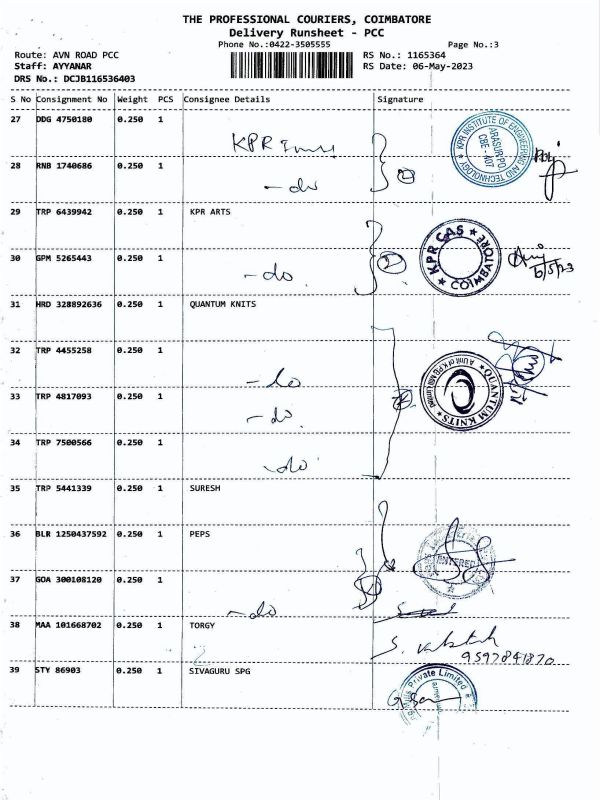 THE PROFESSIONAL COURIERS, COIMBATORE
Delivery Runsheet - PCC
Phone No.:0422-3505555 Page No.:3
Route: AVN ROAD PCC RS No.: 1165364
Staff: AYYANAR RS Date: 06-May-2023
DRS No.: DCJB116536403
S No Consignment No Weight PCS Consignee Details Signature
27 DDG 4750180 0.250 1
KPR
KPR INSTITUTE OF ENGINEERING AND TECHNOLOGY
ARASUR-PO
CBE - 407
28 RNB 1740686 0.250 1
- do
2
29 TRP 6439942 0.250 1 KPR ARTS
KPR CAS
COIMBATORE
30 GPM 5265443 0.250 1
- do
2
31 HRD 328892636 0.250 1 QUANTUM KNITS
32 TRP 4455258 0.250 1
- do
QUANTUM KNITS
33 TRP 4817093 0.250 1
- do
34 TRP 7500566 0.250 1
- do
35 TRP 5441339 0.250 1 SURESH
36 BLR 1250437592 0.250 1 PEPS
ENTERED
37 GOA 300108120 0.250 1
- do
38 MAA 101668702 0.250 1 TORGY
9597841870
39 STY 86903 0.250 1 SIVAGURU SPG
Private Limited